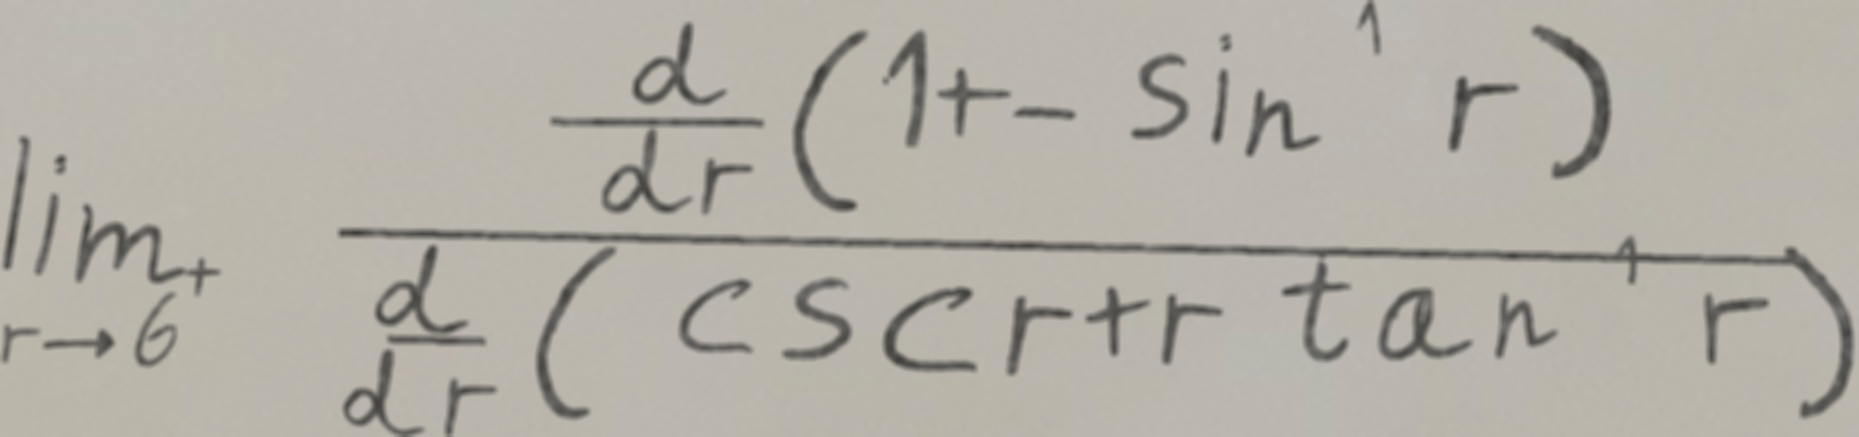 \lim_{r \to 6^+} \frac{\frac{d}{dr}(1+-\sin^1 r)}{\frac{d}{dr}(\csc r+r \tan^1 r)}